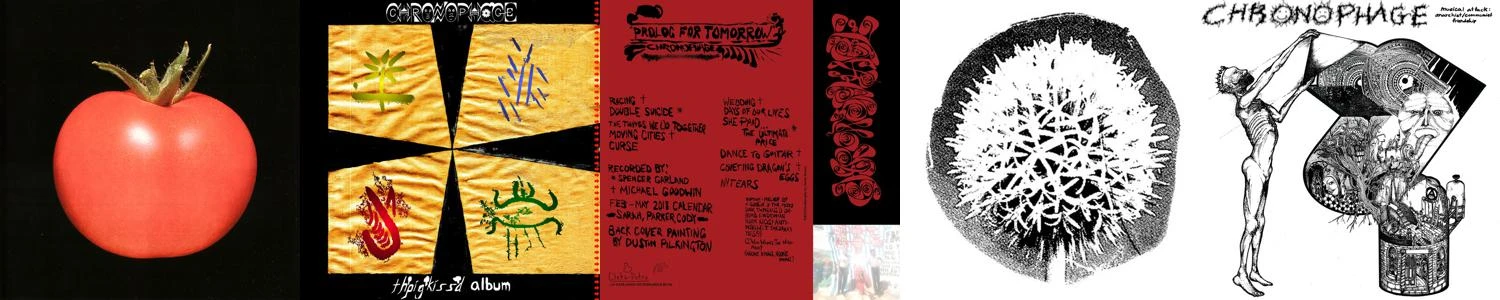 CHRONOPHAGE
th'pig'kiss'd album
PROLOG FOR TOMORROW
CHRONOPHAGE
RACING †
DOUBLE SUICIDE *
THE THINGS WE DO TOGETHER
MOVING CITIES †
CURSE
RECORDED BY:
* SPENCER GARLAND
† MICHAEL GOODWIN
FEB - MAY 2018 CALENDAR
SARAH, PARKER, CODY
BACK COVER PAINTING
BY DUSTIN PILKINGTON
WEDDING †
DAYS OF OUR LIVES
SHE PAID...
THE ULTIMATE *
PRICE
DANCE TO GUITAR †
COVETING DRAGON'S †
EGGS
N TEARS
CHRONOPHAGE
CHRONOPHAGE
musical attack:
anarchist/communist
friendship